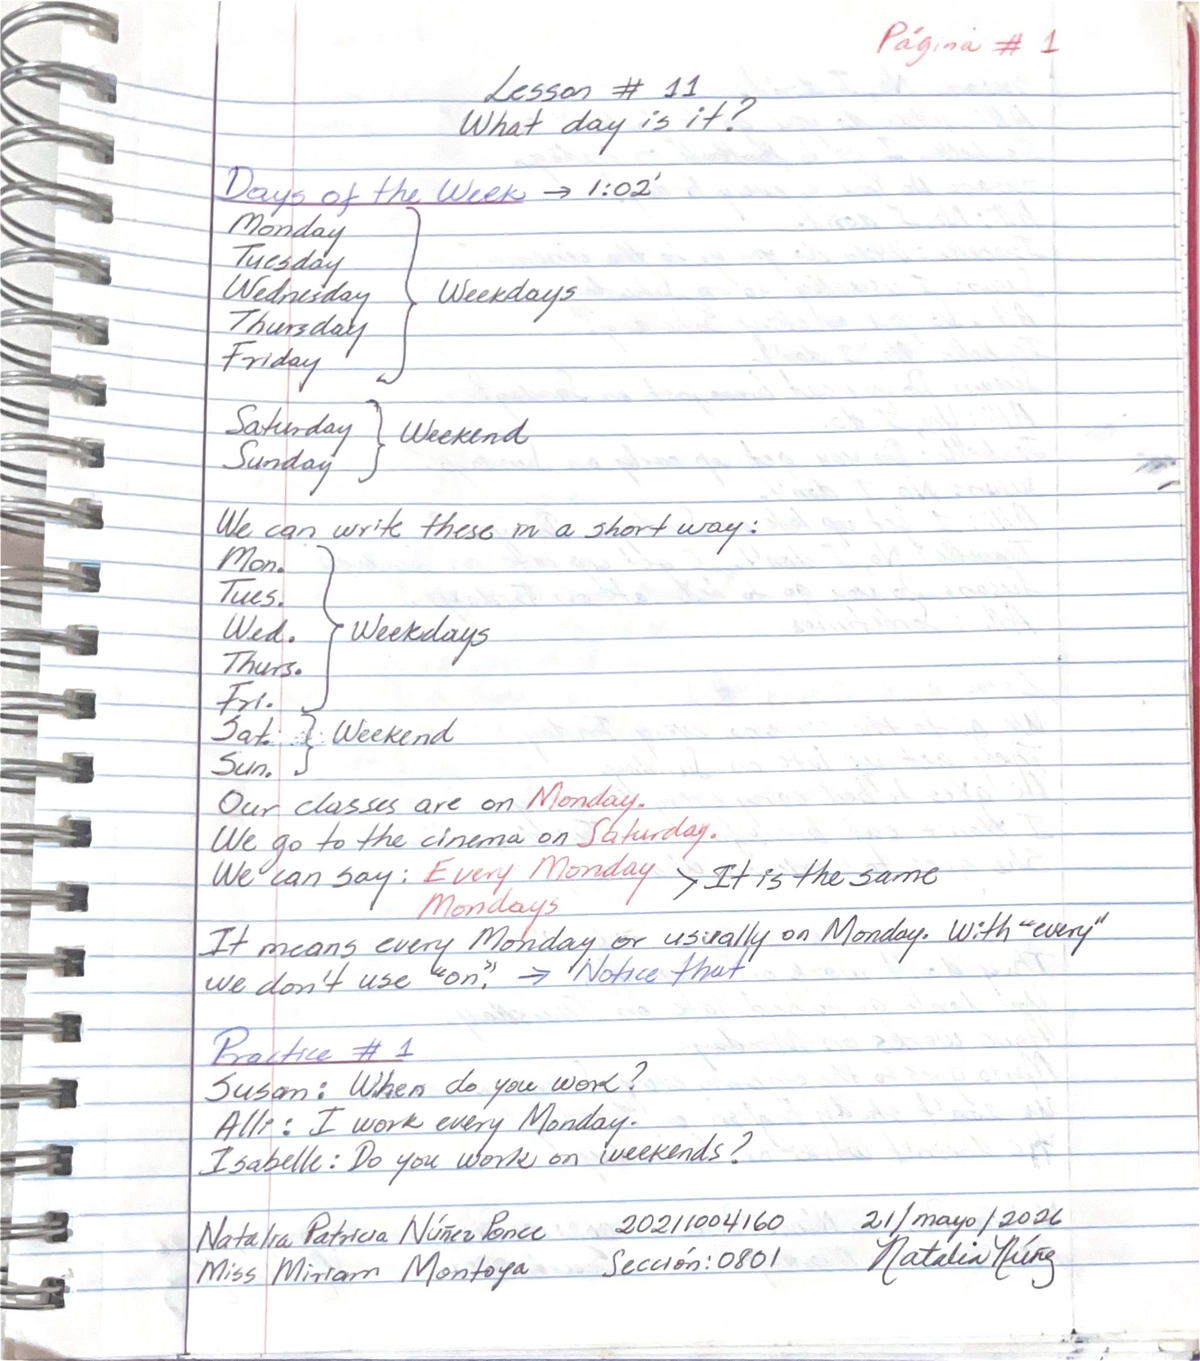 Página # 1
Lesson # 11
What day is it?
Days of the Week → 1:02'
Monday
Tuesday
Wednesday
Thursday
Friday
Weekdays
Saturday
Sunday
Weekend
We can write these in a short way:
Mon.
Tues.
Wed.
Thurs.
Fri.
Weekdays
Sat.
Sun.
Weekend
Our classes are on Monday.
We go to the cinema on Saturday.
We can say: Every Monday > It is the same
Mondays
It means every Monday or usually on Monday. With "every"
we don't use "on". → Notice that
Practice # 1
Susan: When do you work?
Alli: I work every Monday.
Isabelle: Do you work on weekends?
Natalia Patricia Núñez Ponce 20211004160 21/mayo/2026
Miss Miriam Montoya Sección: 0801 Natalia Núñez